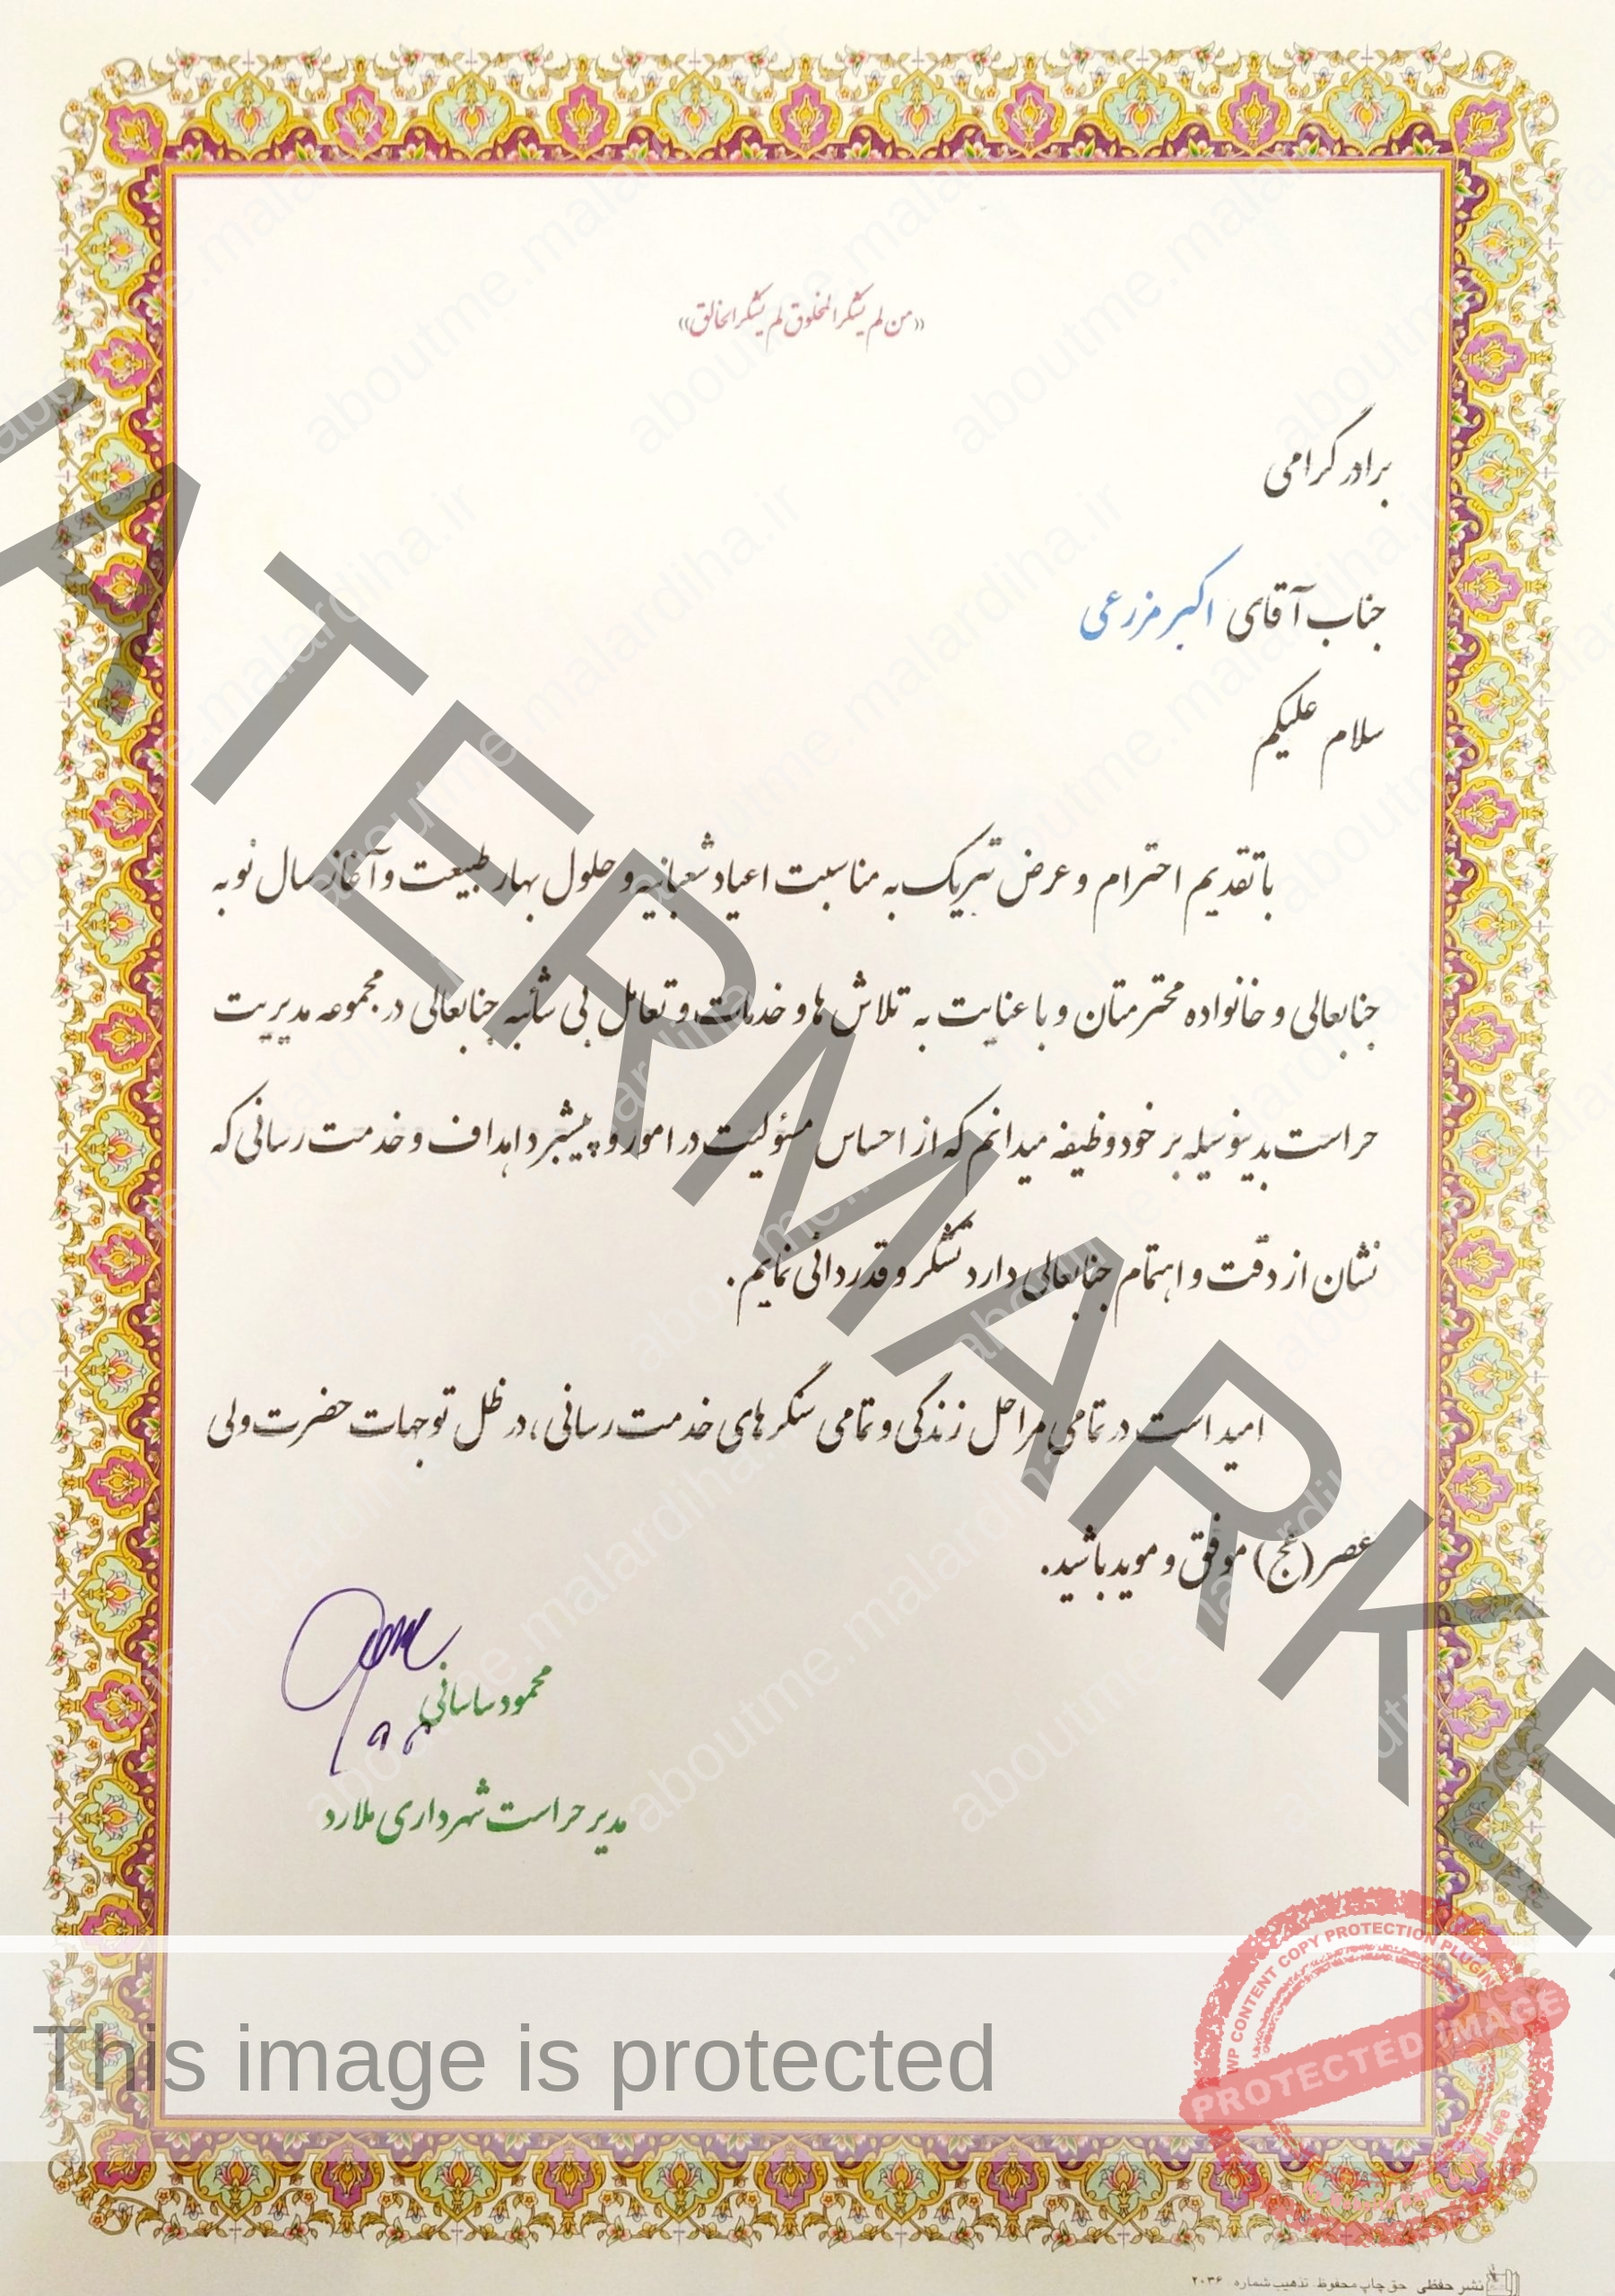 «من لم یشکر المخلوق لم یشکر الخالق»
برادر گرامی
جناب آقای اکبر مزرعی
سلام علیکم
با تقدیم احترام و عرض تبریک به مناسبت اعیاد شعبانیه و حلول بهار طبیعت و آغاز سال نو به
جنابعالی و خانواده محترمتان و با عنایت به تلاش ها و خدمات و تعامل بی شائبه جنابعالی در مجموعه مدیریت
حراست بدینوسیله بر خود وظیفه میدانم که از احساس مسئولیت در امور و پیشبرد اهداف و خدمت رسانی که
نشان از دقت و اهتمام جنابعالی دارد تشکر و قدردانی نمایم.
امید است در تمامی مراحل زندگی و تمامی سنگرهای خدمت رسانی، در ظل توجهات حضرت ولی
عصر (عج) موفق و موید باشید.
محمود ساسانی
مدیر حراست شهرداری ملارد
WATERMARKED
This image is protected
WP CONTENT COPY PROTECTION PLUGIN
PROTECTED IMAGE
aboutme.malardiha.ir
نشر حفظی حق چاپ محفوظ. تذهیب شماره ۲۰۳۶